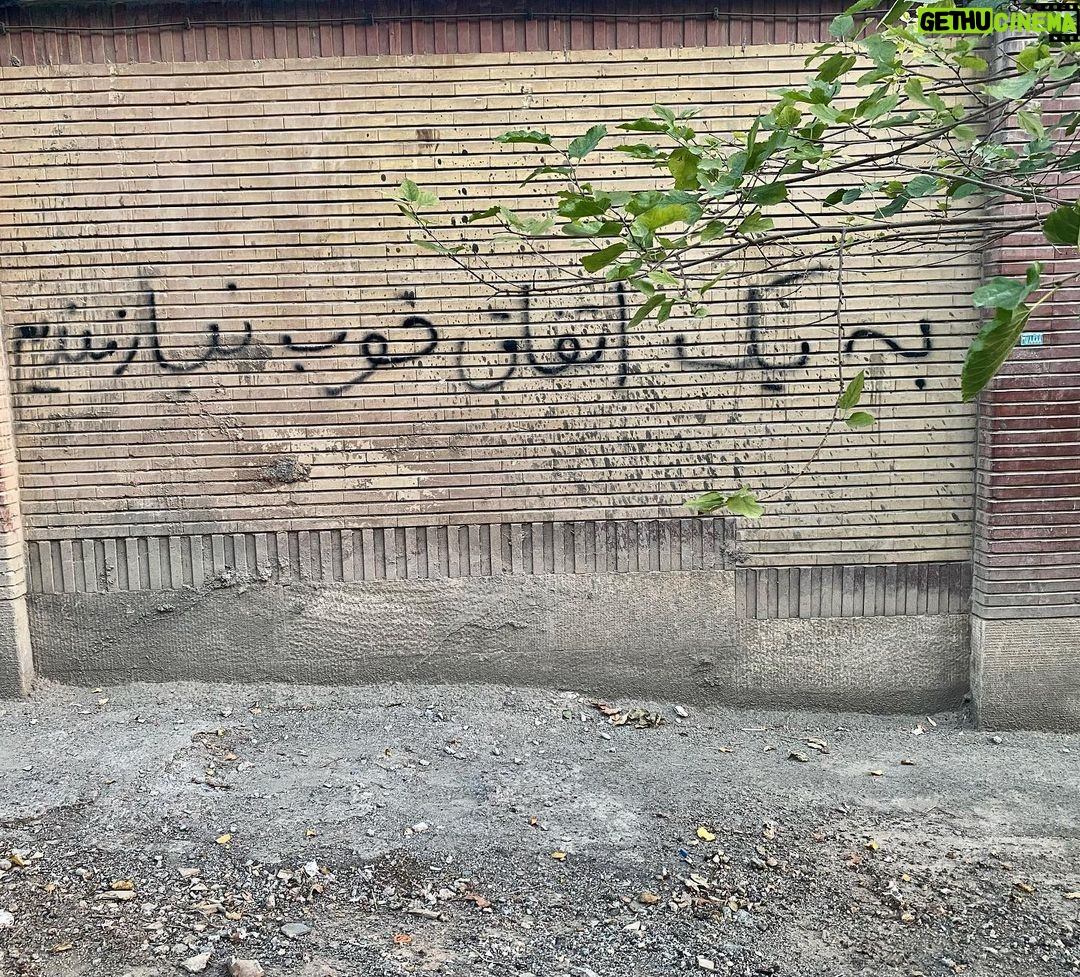 GETHUCINEMA
به یک اتفاق خوب نیازمندیم